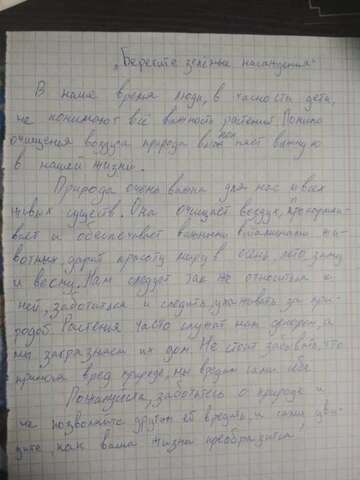 „Берегите зелёные насаждения"
В наше время люди, в часности дети,
не понимают всё важность растений Помимо
очищения воздуха природа вы по няет важную
в нашей жизни.
Природа очень важна для нас и всех
живых существ. Она очищает воздух,
вает и обеспечивает важными витаминами жи-
вотных, дарит красоту миру в осень, лето, зиму
и весну. Нам следует так же относиться к
ней, заботиться и следить, ухаживать за при-
родой. Растенья часто служат нам, а
мы их дом. Не стоит забывать, что
вред природе, мы вредим сами себе
Пожалуйста, заботьтесь о природе и
не позволяйте другим ей вредить, и сами уви-
дите, как ваша жизнь преобразится!